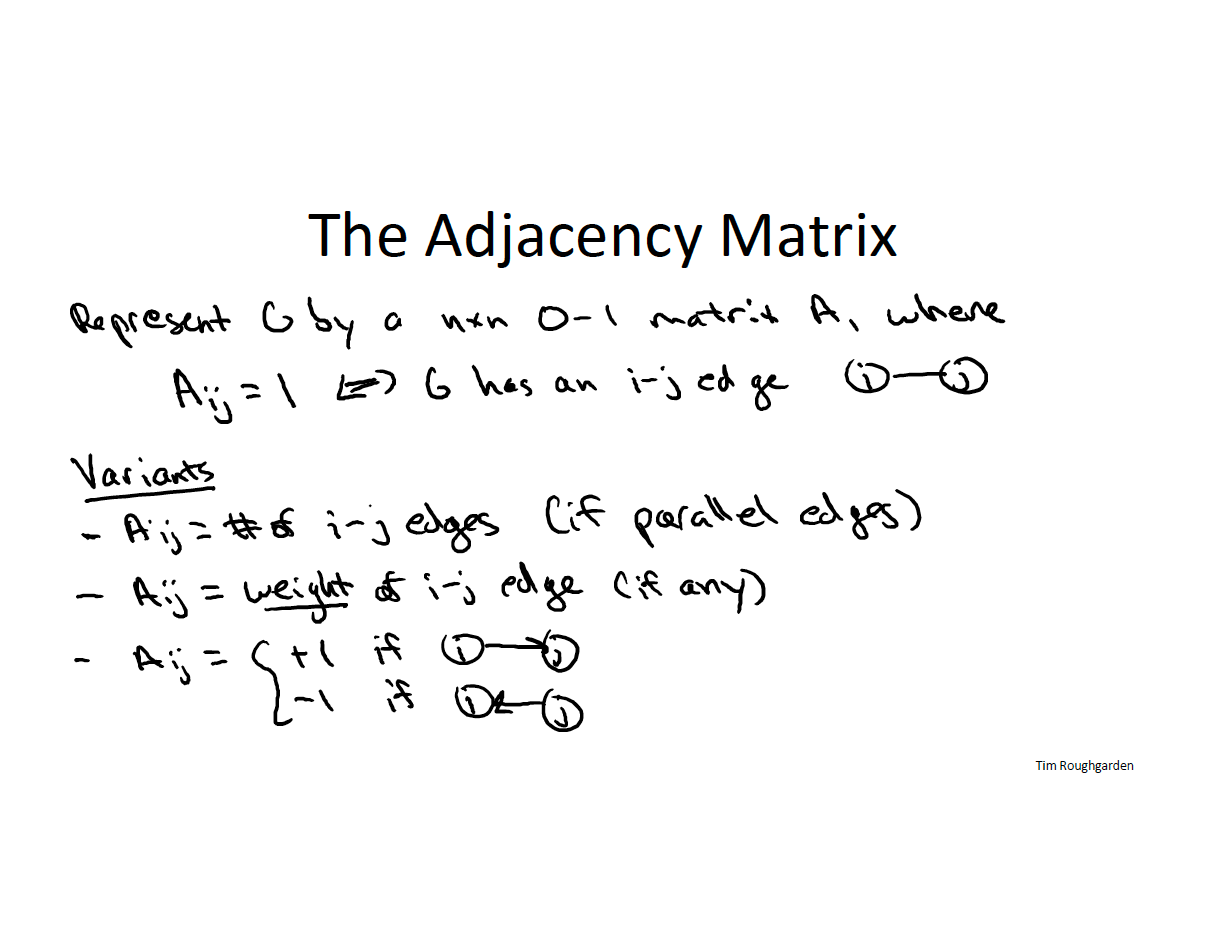 The Adjacency Matrix
Represent G by a n×n 0-1 matrix A, where
Aij = 1 <=> G has an i-j edge i j
Variants
- Aij = # of i-j edges (if parallel edges)
- Aij = weight of i-j edge (if any)
- Aij = { +1 if i j
-1 if i j
Tim Roughgarden